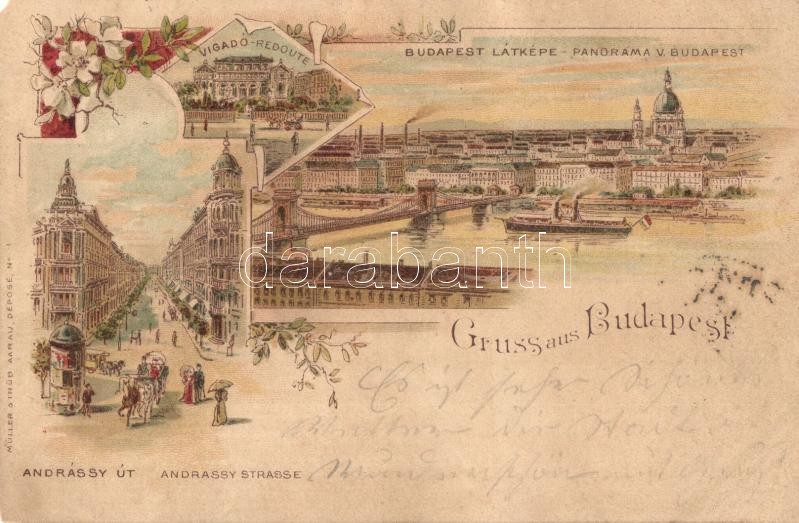 VIGADÓ-REDOUTE
BUDAPEST LÁTKÉPE - PANORAMA V. BUDAPEST
darabanth
Gruss aus Budapest
Es ist sehr
die Stadt
MÜLLER & TRÜB AARAU, DÉPOSÉ, No 1
ANDRÁSSY ÚT ANDRASSY STRASSE